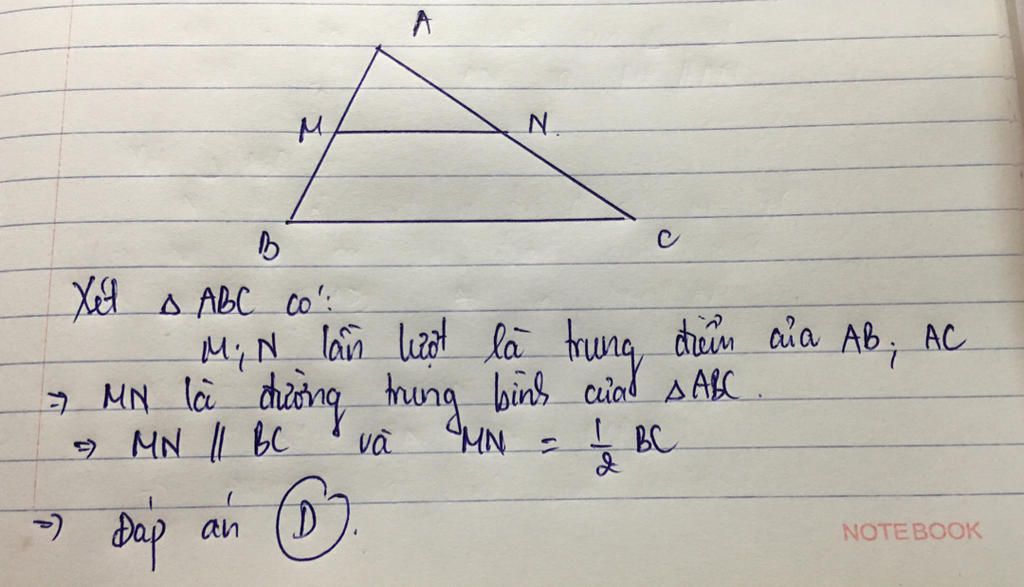 A
M
N.
B
C
Xét △ ABC có:
M; N lần lượt là trung điểm của AB; AC
⇒ MN là đường trung bình của △ABC.
⇒ MN // BC và MN = 1/2 BC
⇒ Đáp án D.
NOTEBOOK